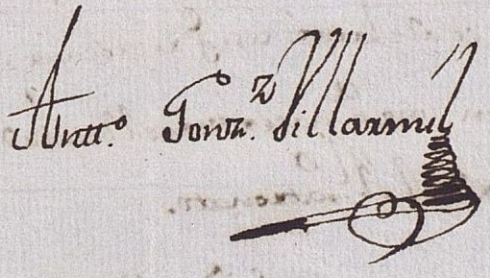 Antt.º Gonz.z Villarmil